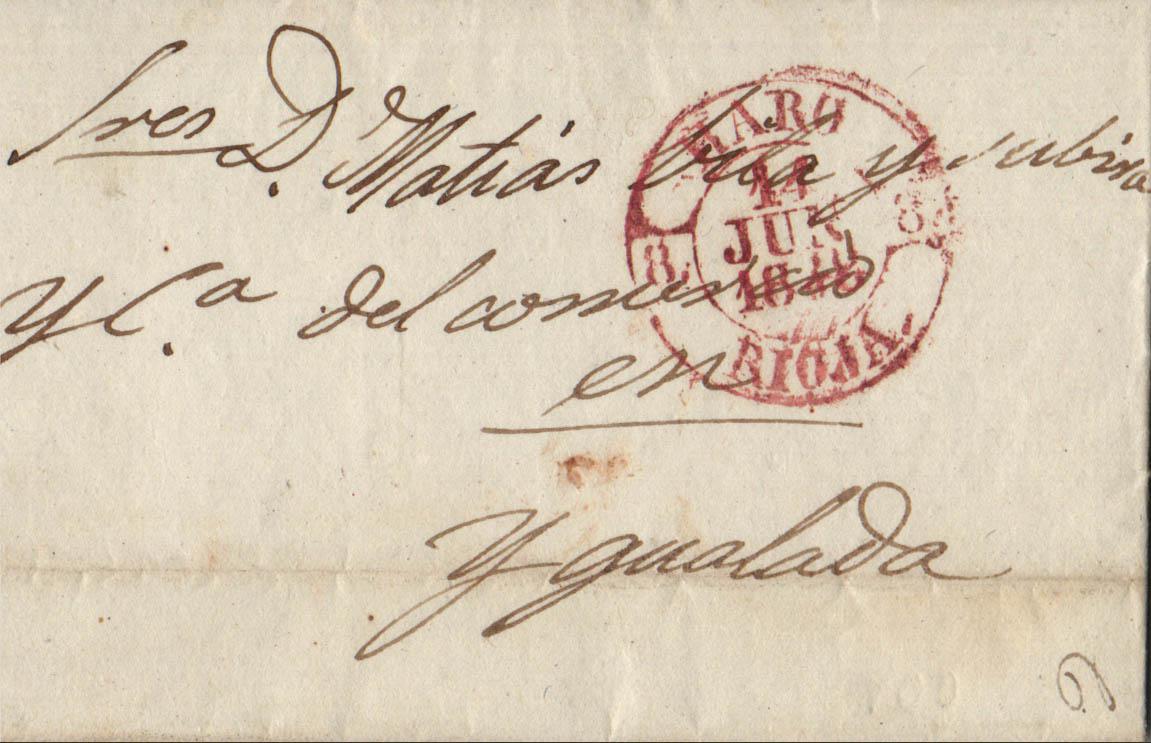 Sres D. Matias Vila y Subira
y C.ª del comercio
en
Ygualada
HARO
14
JUN
8.
RIOJA.